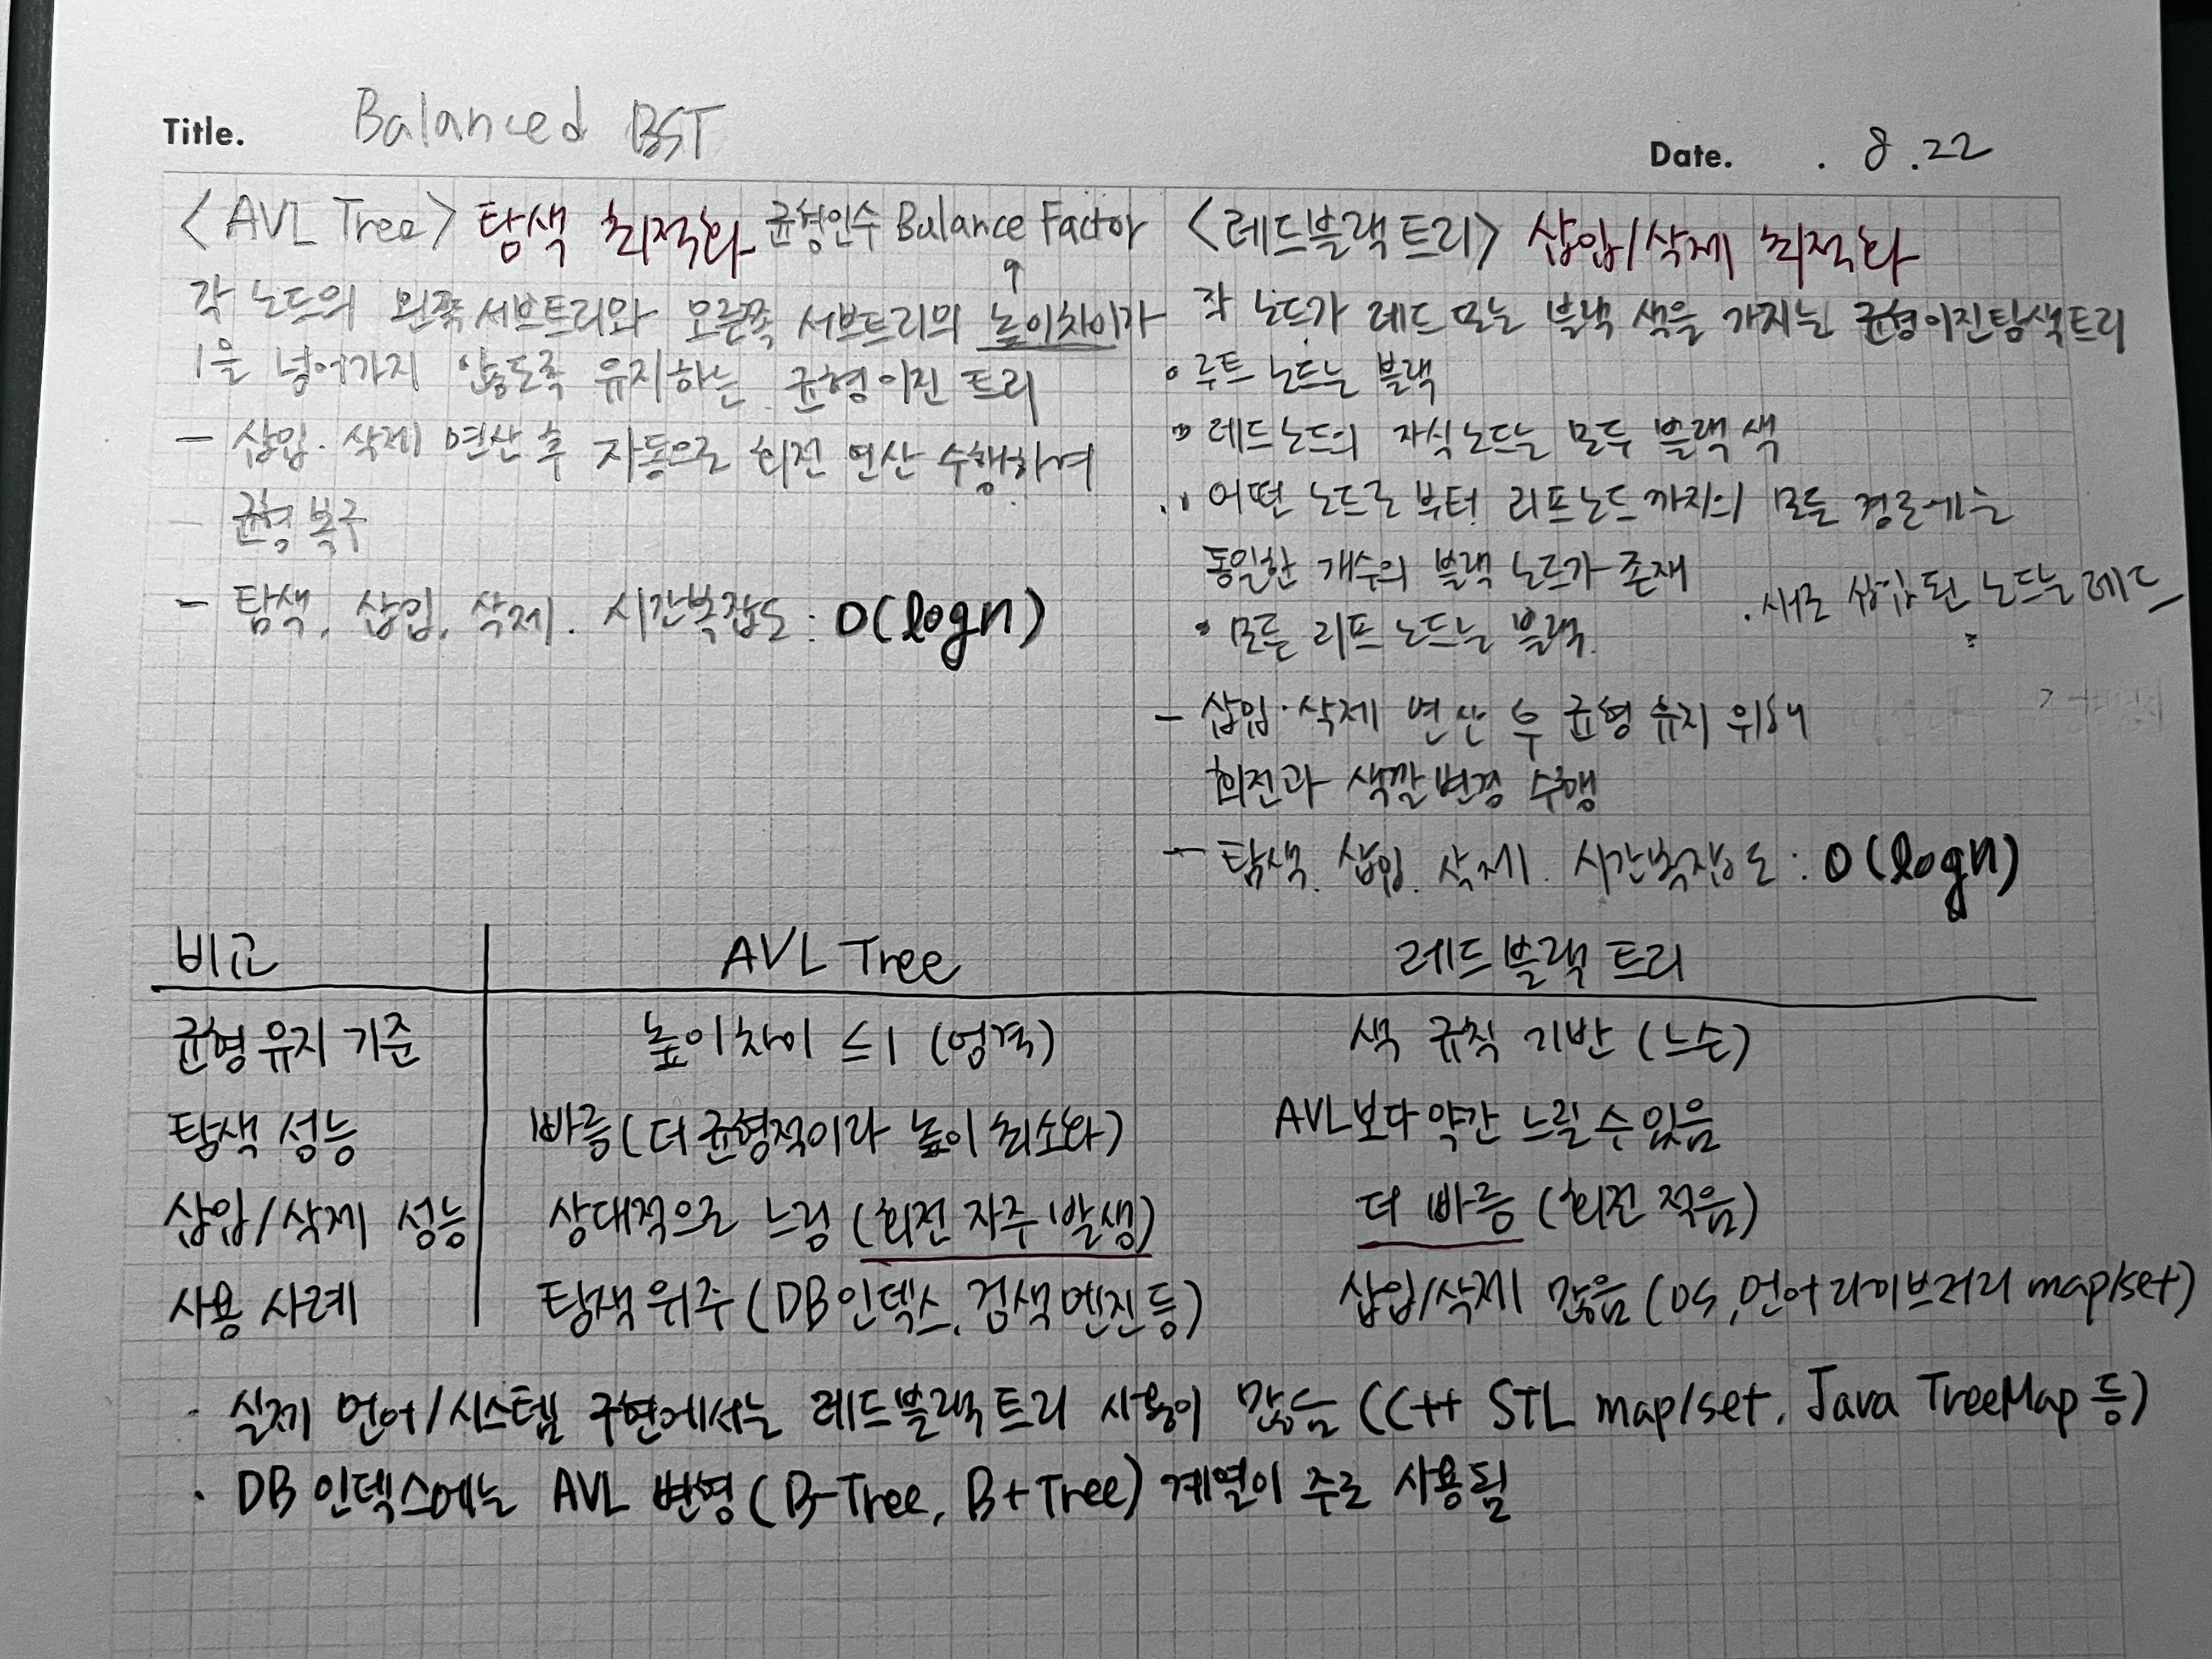 Title. Balanced BST
Date. . 8.22
<AVL Tree> 탐색 최적화 균형인수 Balance Factor
각 노드의 왼쪽 서브트리와 오른쪽 서브트리의 높이차이가
1을 넘어가지 않도록 유지하는 균형 이진 트리
- 삽입·삭제 연산 후 자동으로 회전 연산 수행하여
- 균형 복구
- 탐색, 삽입, 삭제. 시간복잡도 : O(logn)
<레드블랙 트리> 삽입/삭제 최적화
각 노드가 레드 또는 블랙 색을 가지는 균형이진탐색트리
• 루트 노드는 블랙
• 레드노드의 자식노드는 모두 블랙 색
• 어떤 노드로부터 리프노드까지의 모든 경로에는
동일한 개수의 블랙 노드가 존재
• 모든 리프 노드는 블랙.
· 새로 삽입된 노드는 레드
- 삽입·삭제 연산 후 균형 유지 위해
회전과 색깔변경 수행
- 탐색. 삽입. 삭제. 시간복잡도 : O(logn)
비고 AVL Tree 레드블랙 트리
균형 유지 기준 높이차이 ≤1 (엄격) 색 규칙 기반 (느슨)
탐색 성능 빠름(더 균형적이라 높이 최소화) AVL보다 약간 느릴 수 있음
삽입/삭제 성능 상대적으로 느림 (회전 자주 발생) 더 빠름 (회전 적음)
사용 사례 탐색 위주 (DB 인덱스, 검색 엔진 등) 삽입/삭제 많음 (OS, 언어 라이브러리 map/set)
· 실제 언어/시스템 구현에서는 레드블랙 트리 사용이 많음 (C++ STL map/set, Java TreeMap 등)
· DB 인덱스에는 AVL 변형 (B-Tree, B+Tree) 계열이 주로 사용됨